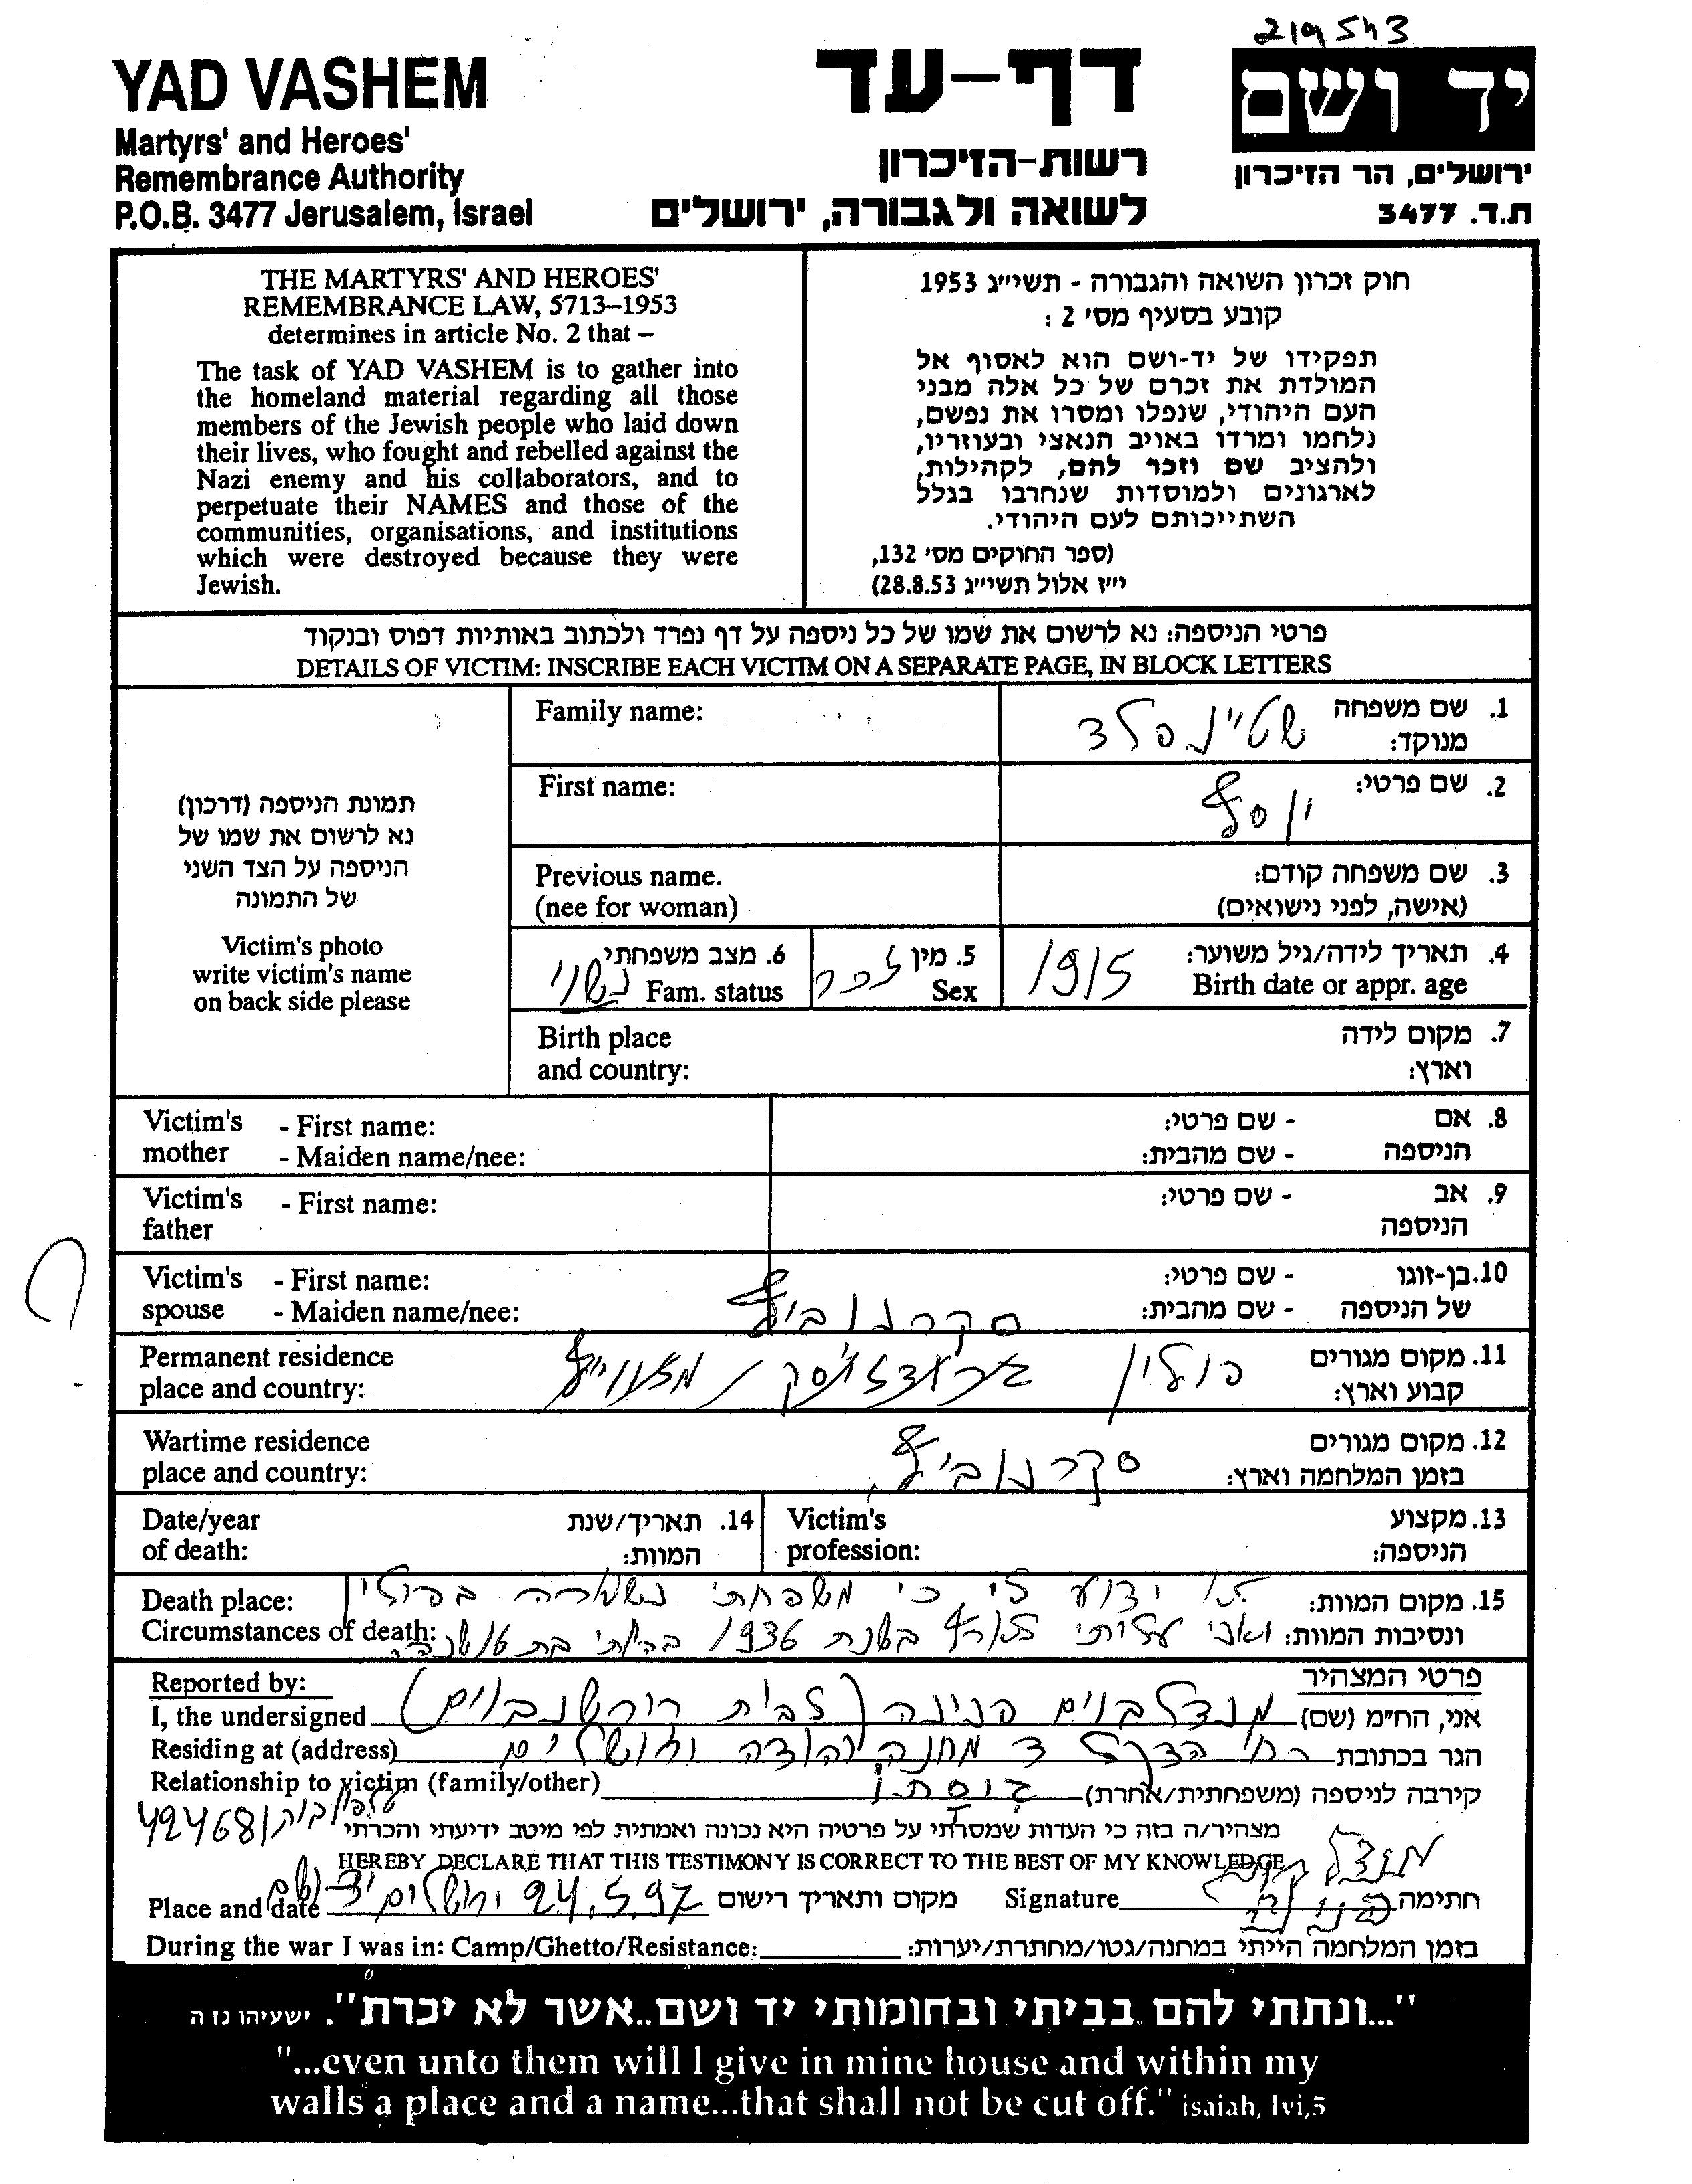 219543
YAD VASHEM
Martyrs' and Heroes'
Remembrance Authority
P.O.B. 3477 Jerusalem, Israel
דף-עד
רשות-הזיכרון
לשואה ולגבורה, ירושלים
יד ושם
ירושלים, הר הזיכרון
ת.ד. 3477
THE MARTYRS' AND HEROES'
REMEMBRANCE LAW, 5713–1953
determines in article No. 2 that –
The task of YAD VASHEM is to gather into
the homeland material regarding all those
members of the Jewish people who laid down
their lives, who fought and rebelled against the
Nazi enemy and his collaborators, and to
perpetuate their NAMES and those of the
communities, organisations, and institutions
which were destroyed because they were
Jewish.
חוק זכרון השואה והגבורה - תשי״ג 1953
קובע בסעיף מס' 2 :
תפקידו של יד-ושם הוא לאסוף אל
המולדת את זכרם של כל אלה מבני
העם היהודי, שנפלו ומסרו את נפשם,
נלחמו ומרדו באויב הנאצי ובעוזריו,
ולהציב שם וזכר להם, לקהילות,
לארגונים ולמוסדות שנחרבו בגלל
השתייכותם לעם היהודי.
(ספר החוקים מס' 132,
י״ז אלול תשי״ג 28.8.53)
פרטי הניספה: נא לרשום את שמו של כל ניספה על דף נפרד ולכתוב באותיות דפוס ובנקוד
DETAILS OF VICTIM: INSCRIBE EACH VICTIM ON A SEPARATE PAGE, IN BLOCK LETTERS
תמונת הניספה (דרכון)
נא לרשום את שמו של
הניספה על הצד השני
של התמונה
Victim's photo
write victim's name
on back side please
1. שם משפחה
מנוקד: שטיינפלד Family name:
2. שם פרטי: יוסף First name:
3. שם משפחה קודם: Previous name.
(אישה, לפני נישואים) (nee for woman)
4. תאריך לידה/גיל משוער: 1915
Birth date or appr. age
5. מין זכר
Sex
6. מצב משפחתי נשוי
Fam. status
7. מקום לידה Birth place
וארץ: and country:
8. אם - שם פרטי: Victim's - First name:
הניספה - שם מהבית: mother - Maiden name/nee:
9. אב - שם פרטי: Victim's - First name:
הניספה father
10. בן-זוגו - שם פרטי: Victim's - First name:
של הניספה - שם מהבית: סקרנוביף spouse - Maiden name/nee:
11. מקום מגורים Permanent residence
קבוע וארץ: פולין place and country:
12. מקום מגורים Wartime residence
בזמן המלחמה וארץ: סקרנוביף place and country:
13. מקצוע Victim's
הניספה: profession:
14. תאריך/שנת Date/year
המוות: of death:
15. מקום המוות: ידוע לי כי משפחתי נשארה בפולין Death place:
ונסיבות המוות: ואני עליתי לארץ בשנת 1936 בהיותי בת 16 שנה Circumstances of death:
פרטי המצהיר Reported by:
אני, הח״מ (שם) מנדלבוים פנינה (לבית הירשנבוים) I, the undersigned
הגר בכתובת רח' הדקל 3 מחנה יהודה ירושלים Residing at (address)
קירבה לניספה (משפחתית/אחרת) גיסתו Relationship to victim (family/other)
מצהיר/ה בזה כי העדות שמסרתי על פרטיה היא נכונה ואמתית לפי מיטב ידיעתי והכרתי
HEREBY DECLARE THAT THIS TESTIMONY IS CORRECT TO THE BEST OF MY KNOWLEDGE
חתימה מנדלבוים פנינה Signature
מקום ותאריך רישום 24.5.92 ירושלים יד ושם Place and date
בזמן המלחמה הייתי במחנה/גטו/מחתרת/יערות: During the war I was in: Camp/Ghetto/Resistance:
"...ונתתי להם בביתי ובחומותי יד ושם..אשר לא יכרת". ישעיהו נז ה
"...even unto them will I give in mine house and within my
walls a place and a name...that shall not be cut off." isaiah, lvi,5